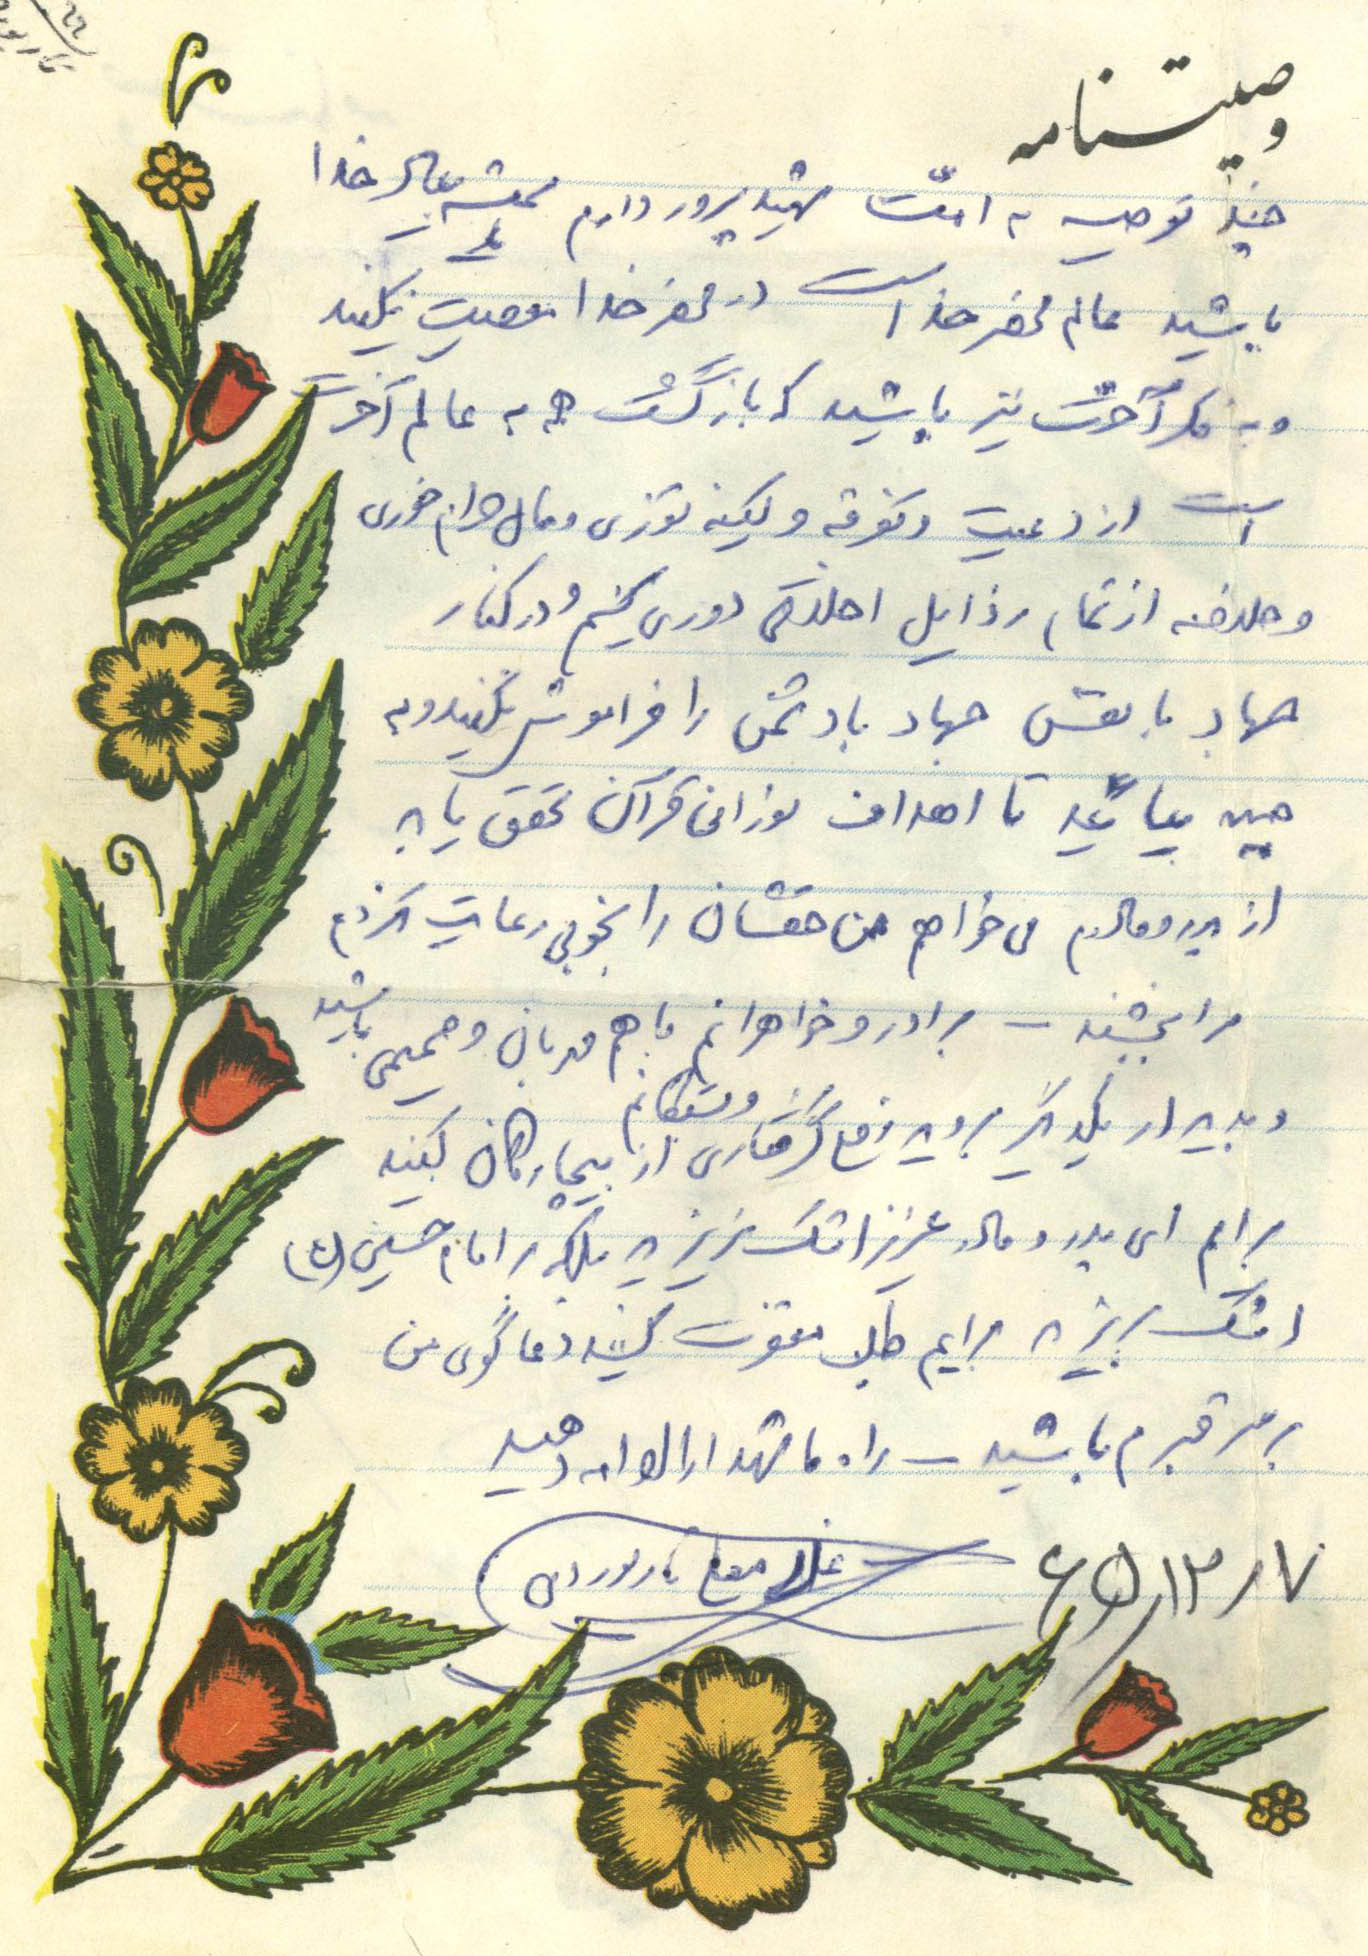 وصیتنامه
چند توصیه به امت شهیدپرور دارم همیشه بیاد خدا
باشید عالم محضر خداست در محضر خدا معصیت نکنید
و به فکر آخرت نیز باشید که بازگشت همه به عالم آخرت
است از غیبت و تفرقه و کینه توزی و مال حرام خوری
و خلاصه از تمام رذایل اخلاقی دوری کنیم و در کنار
جهاد با نفس جهاد با دشمن را فراموش نکنید و به
جبهه بیائید تا اهداف نورانی قرآن تحقق یابد
از پدر و مادرم می خواهم من حقشان را بخوبی رعایت نکردم
مرا ببخشند ـ برادر و خواهرانم با هم مهربان و صمیمی باشید
و به دیدار یکدیگر بروید رفع گرفتاری از بیچارگان کنید
برایم ای پدر و مادر عزیز اشک نریزید بلکه بر امام حسین (ع)
اشک بریزید برایم طلب مغفرت کنید دعا گوی من
بر سر قبرم باشید ـ راه ما شهدا را ادامه دهید
۶۵/۱۲/۷